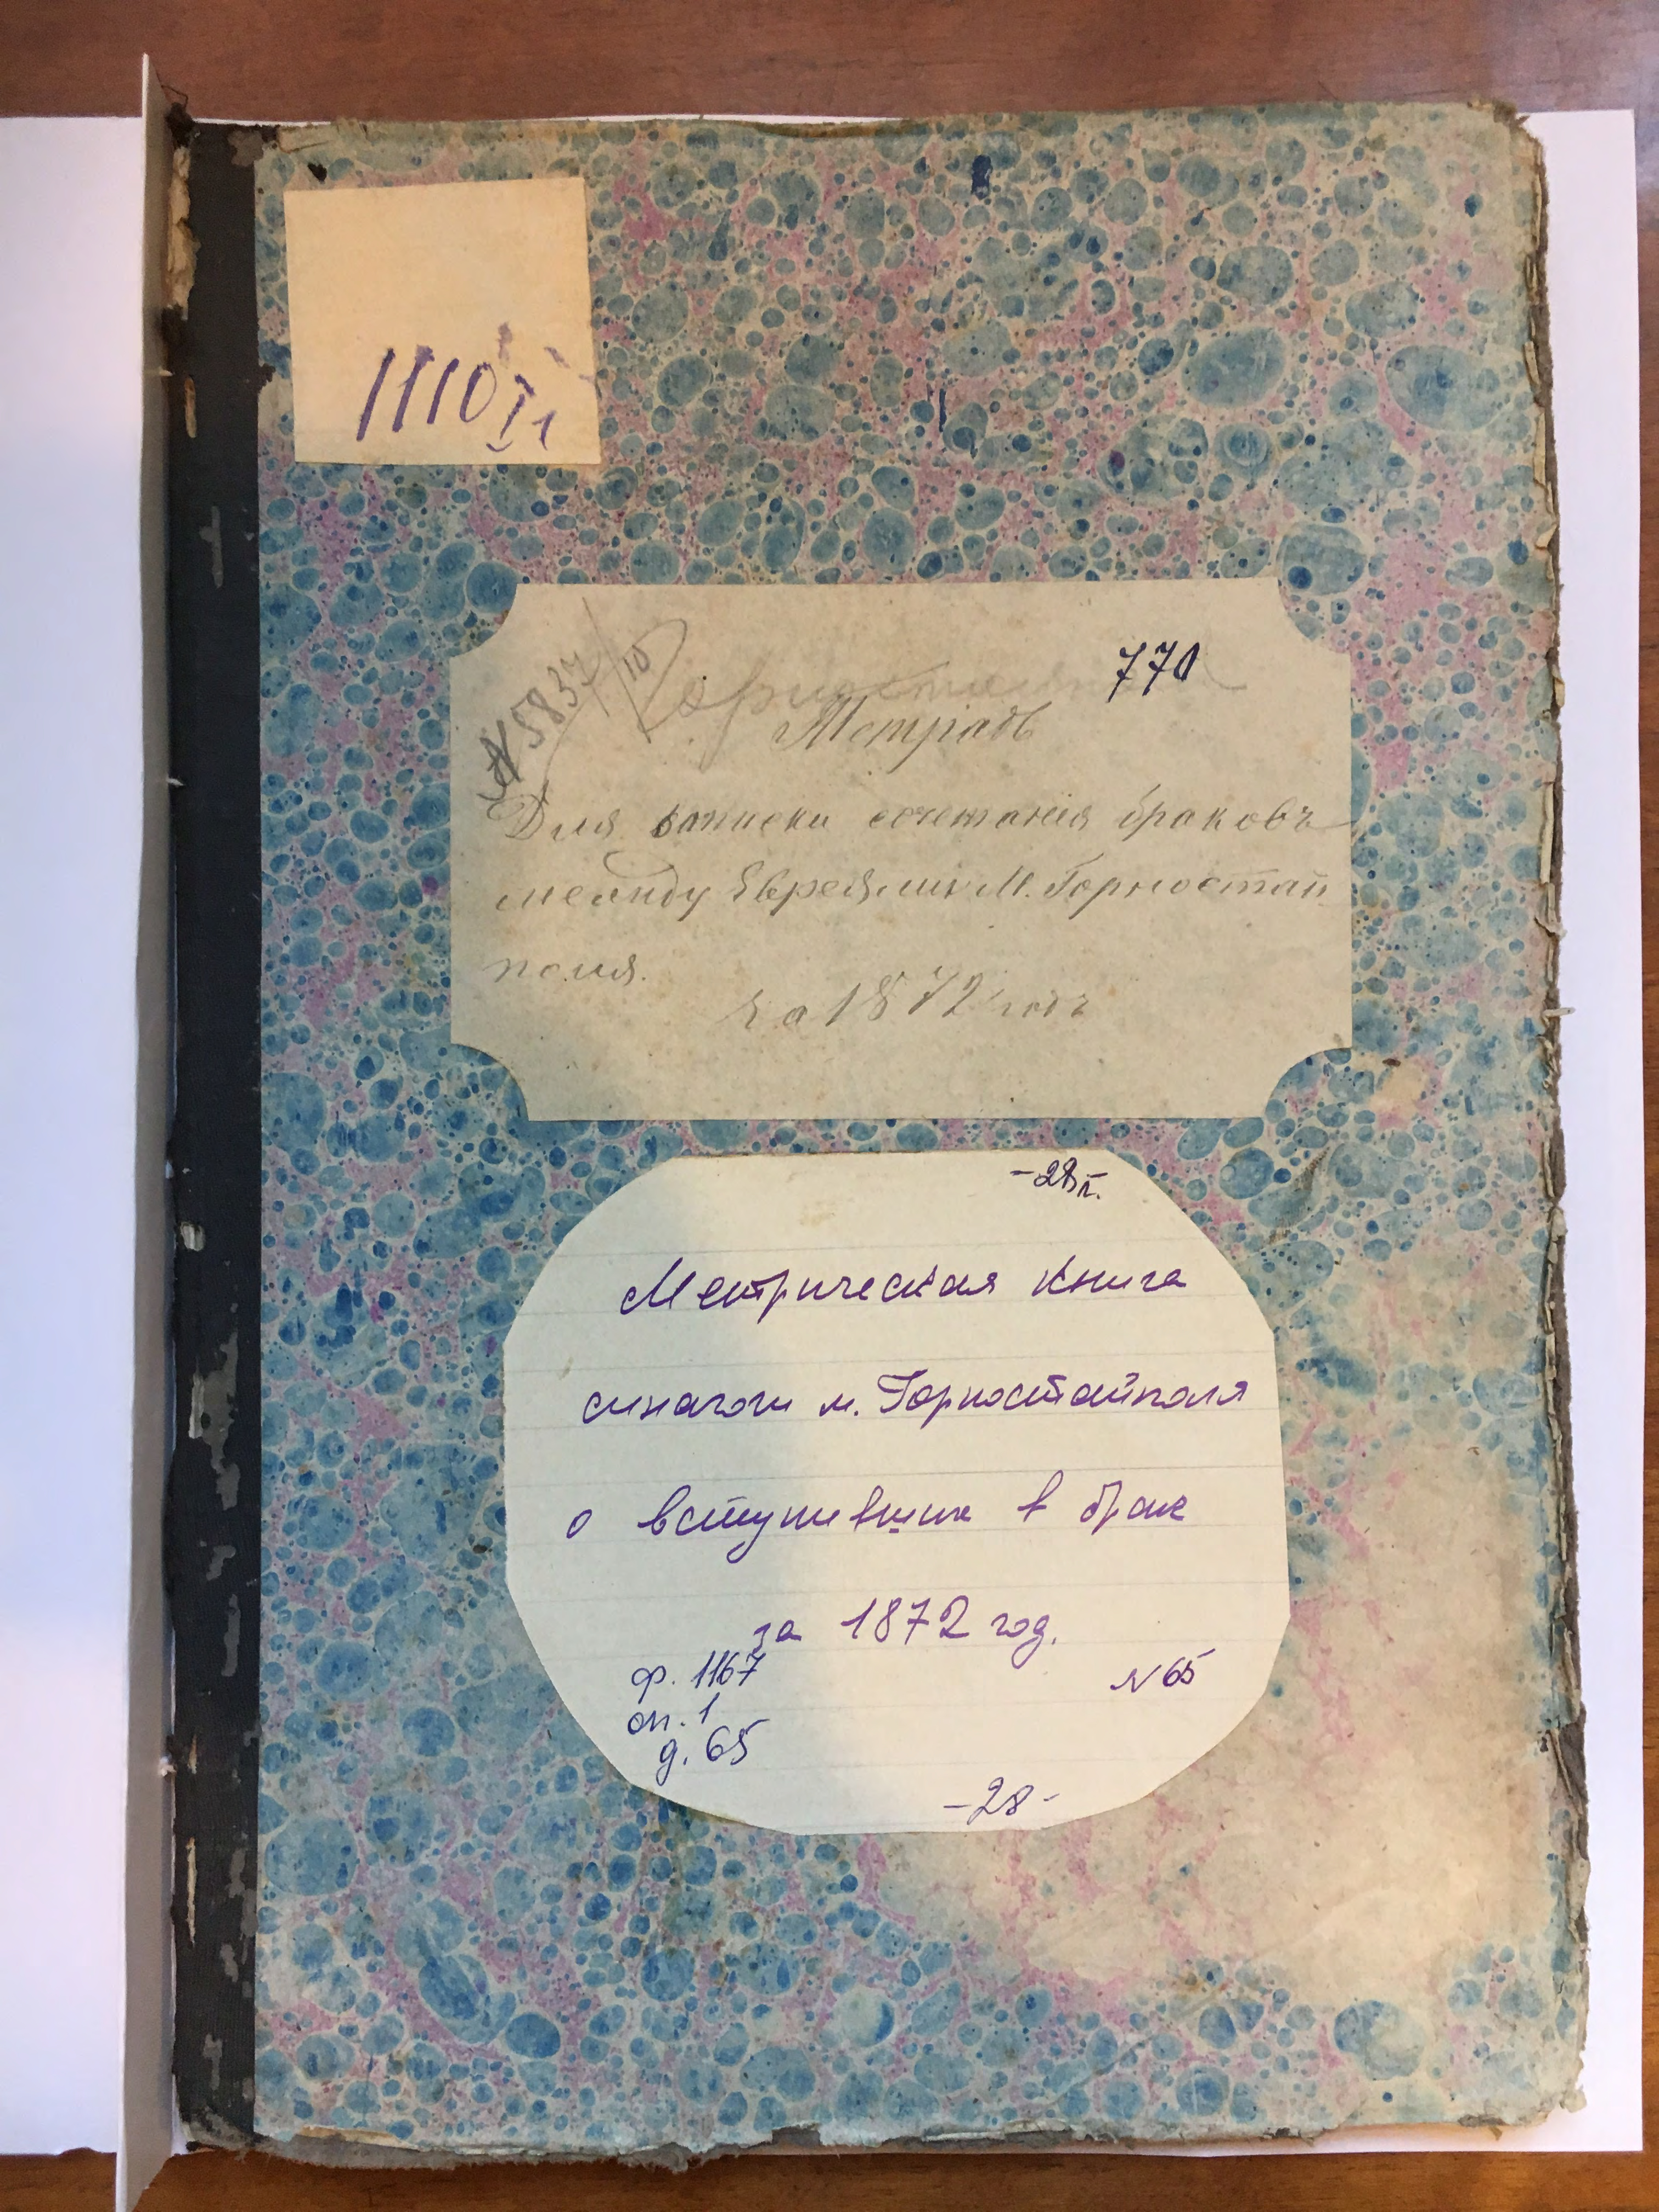 1110 I 1
№ 5837/10
770
Тетрадь
Для записки сочетанія браковъ
между Евреями М. Горностай
поля.
за 1872 годъ
-28л.
Метрическая книга
синагоги м. Горностайполя
о вступивших в брак
за 1872 год.
ф. 1167
оп. 1
д. 65
№65
-28-